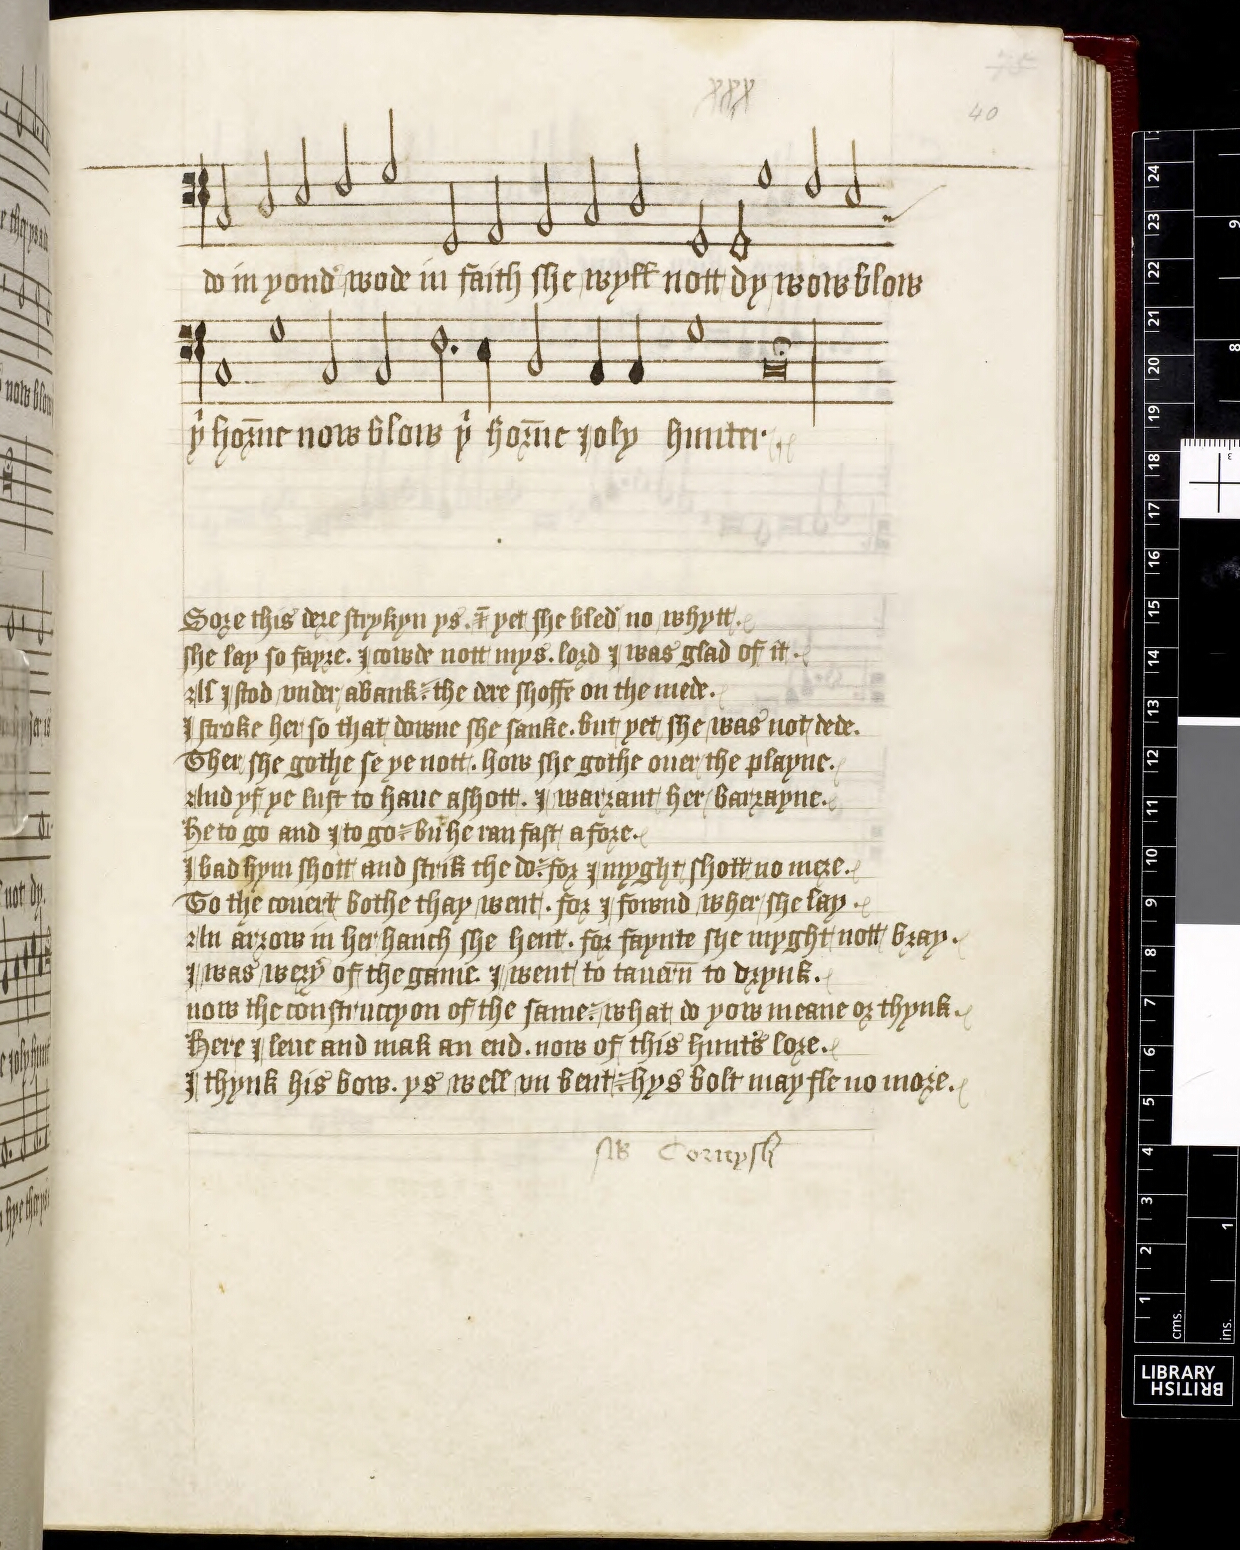 xxx
75
40
do in yond wode in faith she wyll nott dy now blow
yͥ horne now blow yͥ horne joly hunter
Sore this dere strykyn ys. & yet she bled no whytt.
she lay so fayre. I cowde nott mys. lord I was glad of it.
As I stod vnder a bank. the dere shoffe on the mede.
I stroke her so that downe she sanke. but yet she was not dede.
Ther she gothe se ye nott. how she gothe ouer the playne.
And yf ye lust to haue a shott. I warrant her barrayne.
he to go and I to go. but he ran fast a fore.
I bad hym shott and strik the do. for I myght shott no mere.
To the couert bothe thay went. for I fownd wher she lay.
An arrow in her hanch she hent. for faynte she myght nott bray.
I was wery of the game. I went to tauern to drynk.
now the construccyon of the same. what do yow meane or thynk.
Here I leue and mak an end. now of this hunters lore.
I thynk his bow. ys well vn bent. hys bolt may fle no more.
W Cornysh
24
23
22
21
20
19
18
17
16
15
14
13
12
11
10
9
8
7
6
5
4
3
2
1
cms.
9
8
1
ins.
LIBRARY
BRITISH